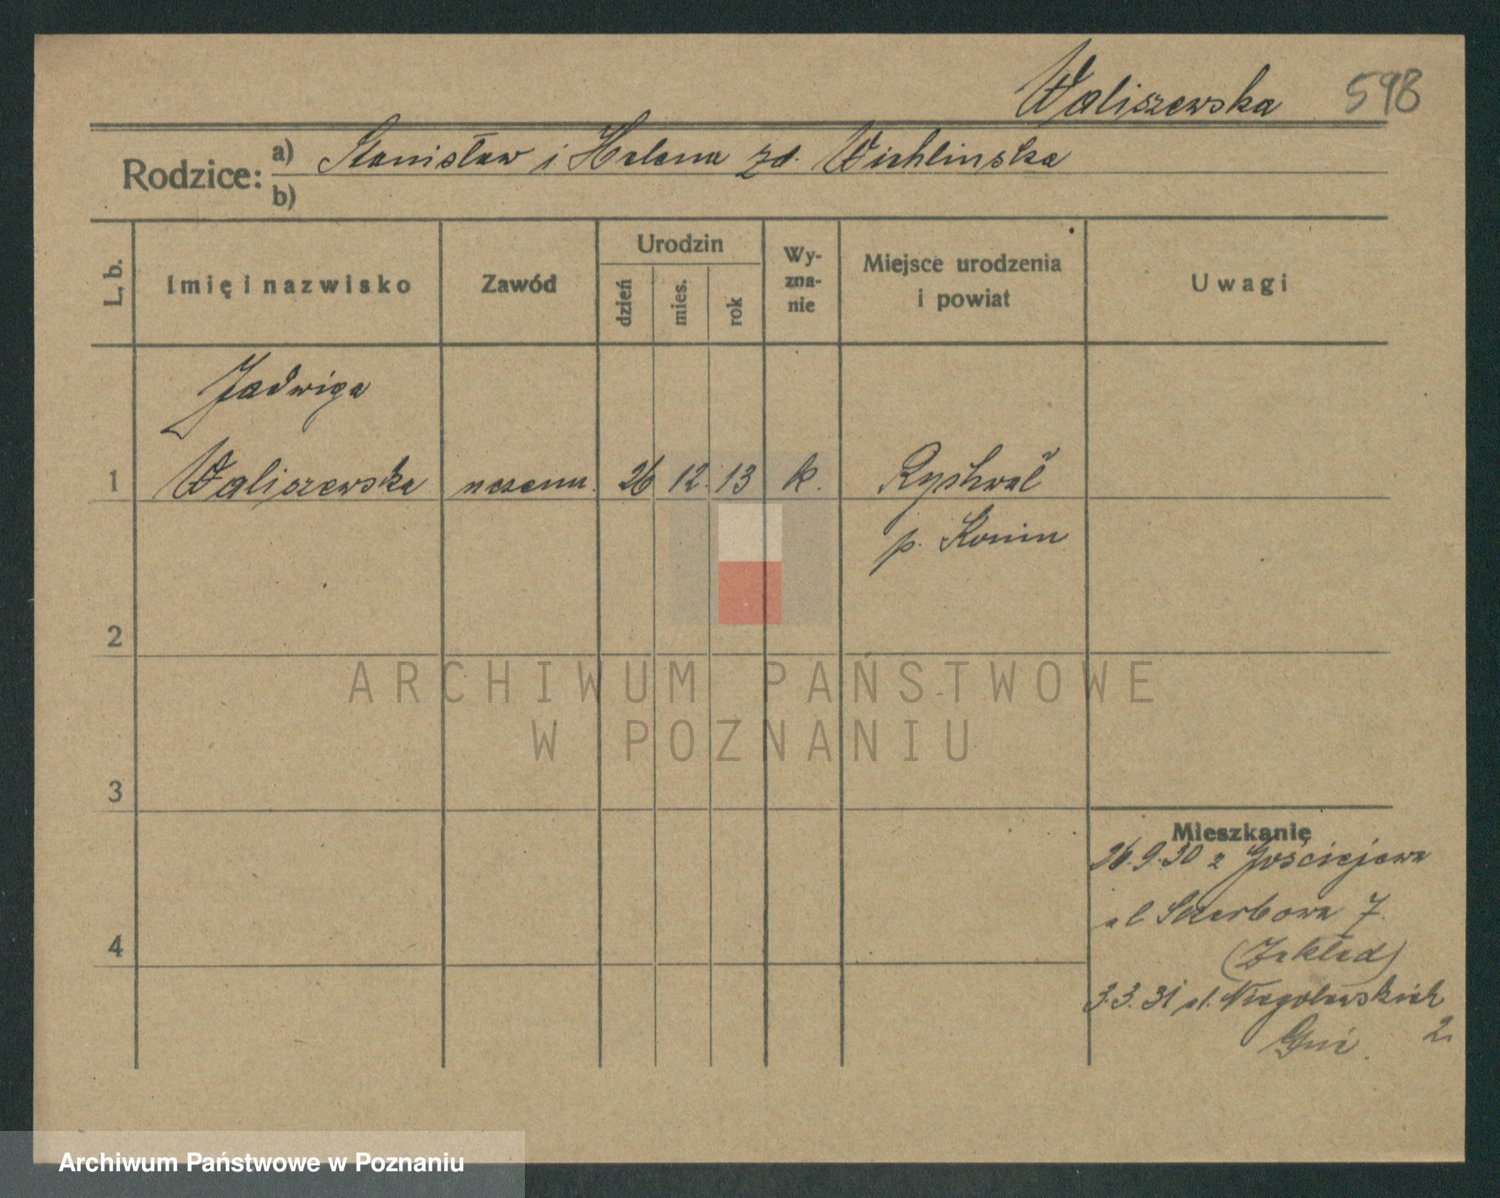 Waliszewska 598
Rodzice: a) Stanisław i Helena zd. Wichlinska
b)
L. b. Imię i nazwisko Zawód Urodzin dzień mies. rok Wy-zna-nie Miejsce urodzenia i powiat Uwagi
Jadwiga
1 Waliszewska uczenn. 26 12. 13 k. Ryshwał
p. Konin
2
ARCHIWUM PAŃSTWOWE
W POZNANIU
3
Mieszkanie
26.9.30 z Gościejewa
ul Skarbowa 7.
4 (Zakład)
3.3.31 ul. Niegolewskich
2
Archiwum Państwowe w Poznaniu